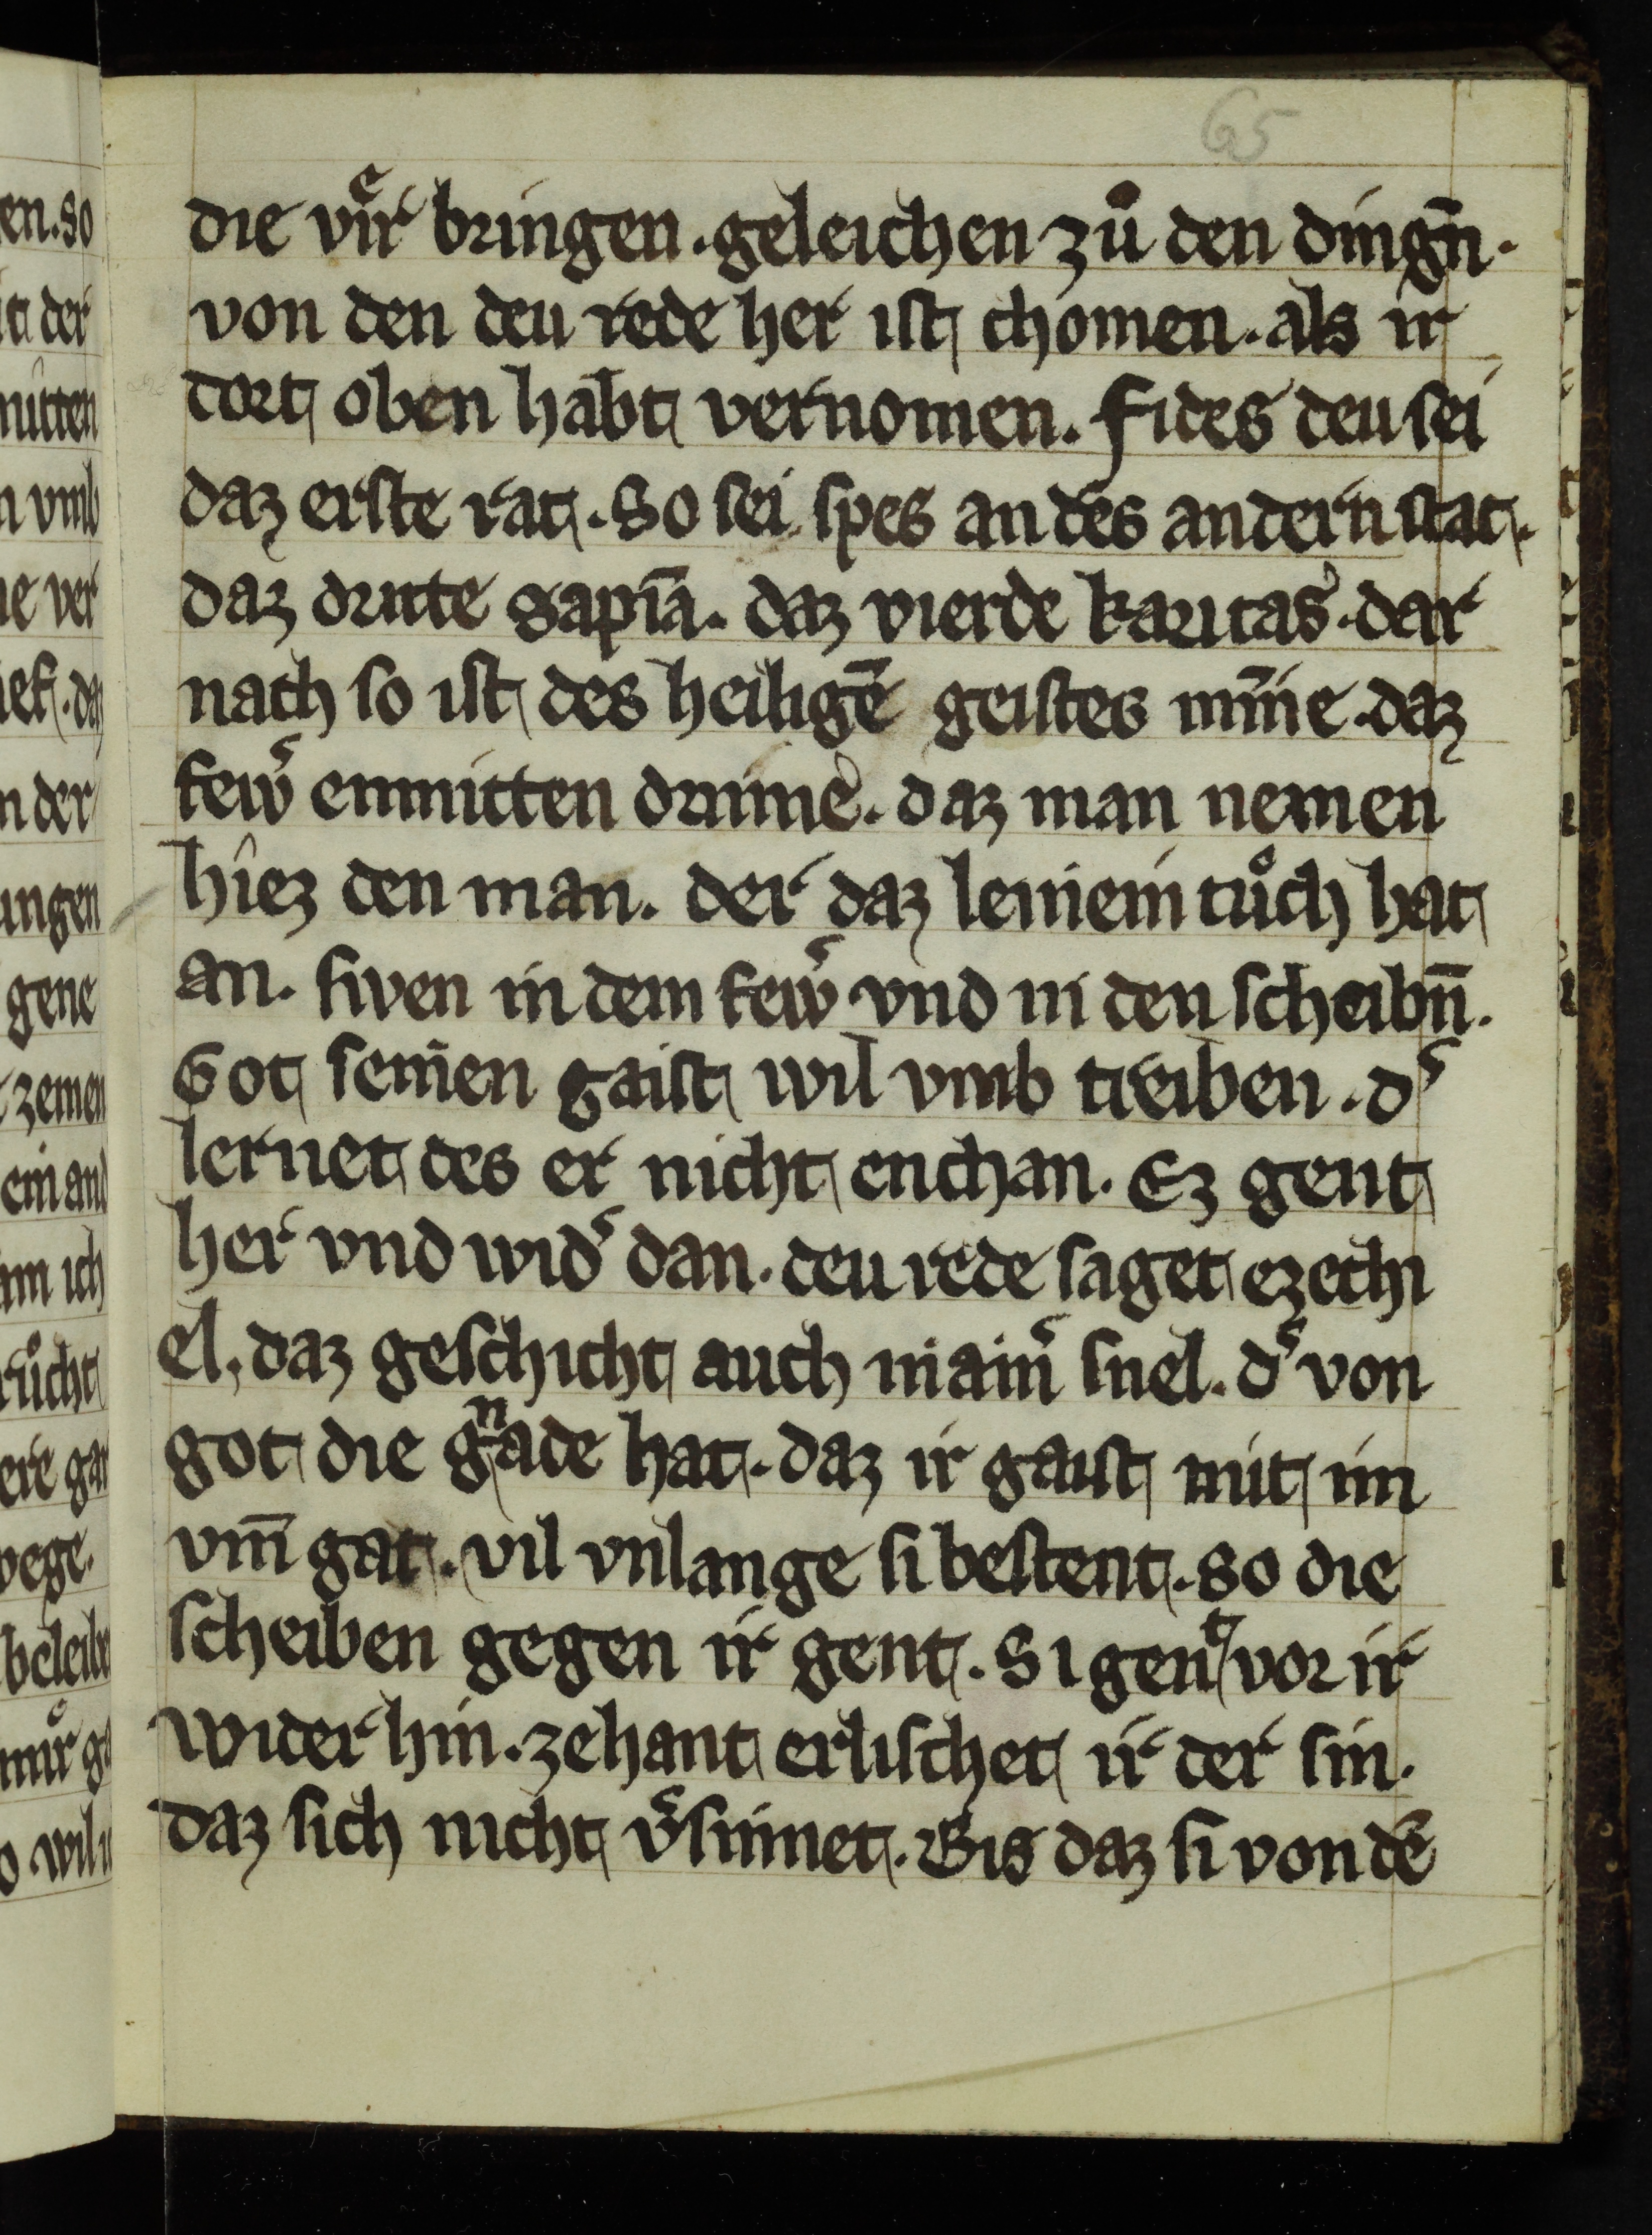 65
die vuͤr bringen . geleichen zuͦ den dingn̄ .
von den deu rede her ist chomen . als ir
dort oben habt vernomen . fides deu sei
daz erste rat . So sei spes an des andern stat .
daz dritte sapīa . daz vierde karitas . dar
nach so ist des heiligē geistes min̄e . daz
fewͬ enmitten drinne . daz man nemen
hiez den man . der daz leinein tuͦch hat
an . siven in dem fewͬ vnd in den scheibn̄ .
Got seinen gaist wil vmb treiben . dͬ
lernet des er nicht enchan . Ez gent
her vnd widͬ dan . deu rede saget ezechi
el , daz geschicht auch niainͬ snel . dͬ von
got die gnade hat . daz ir gaist mit im
vm̄ gat . vil vnlange si bestent . so die
scheiben gegen ir gent . Si gent vor ir
wider hin . zehant erlischet ir der sin .
daz sich nicht vͬsinnet . Bis daz si von dē